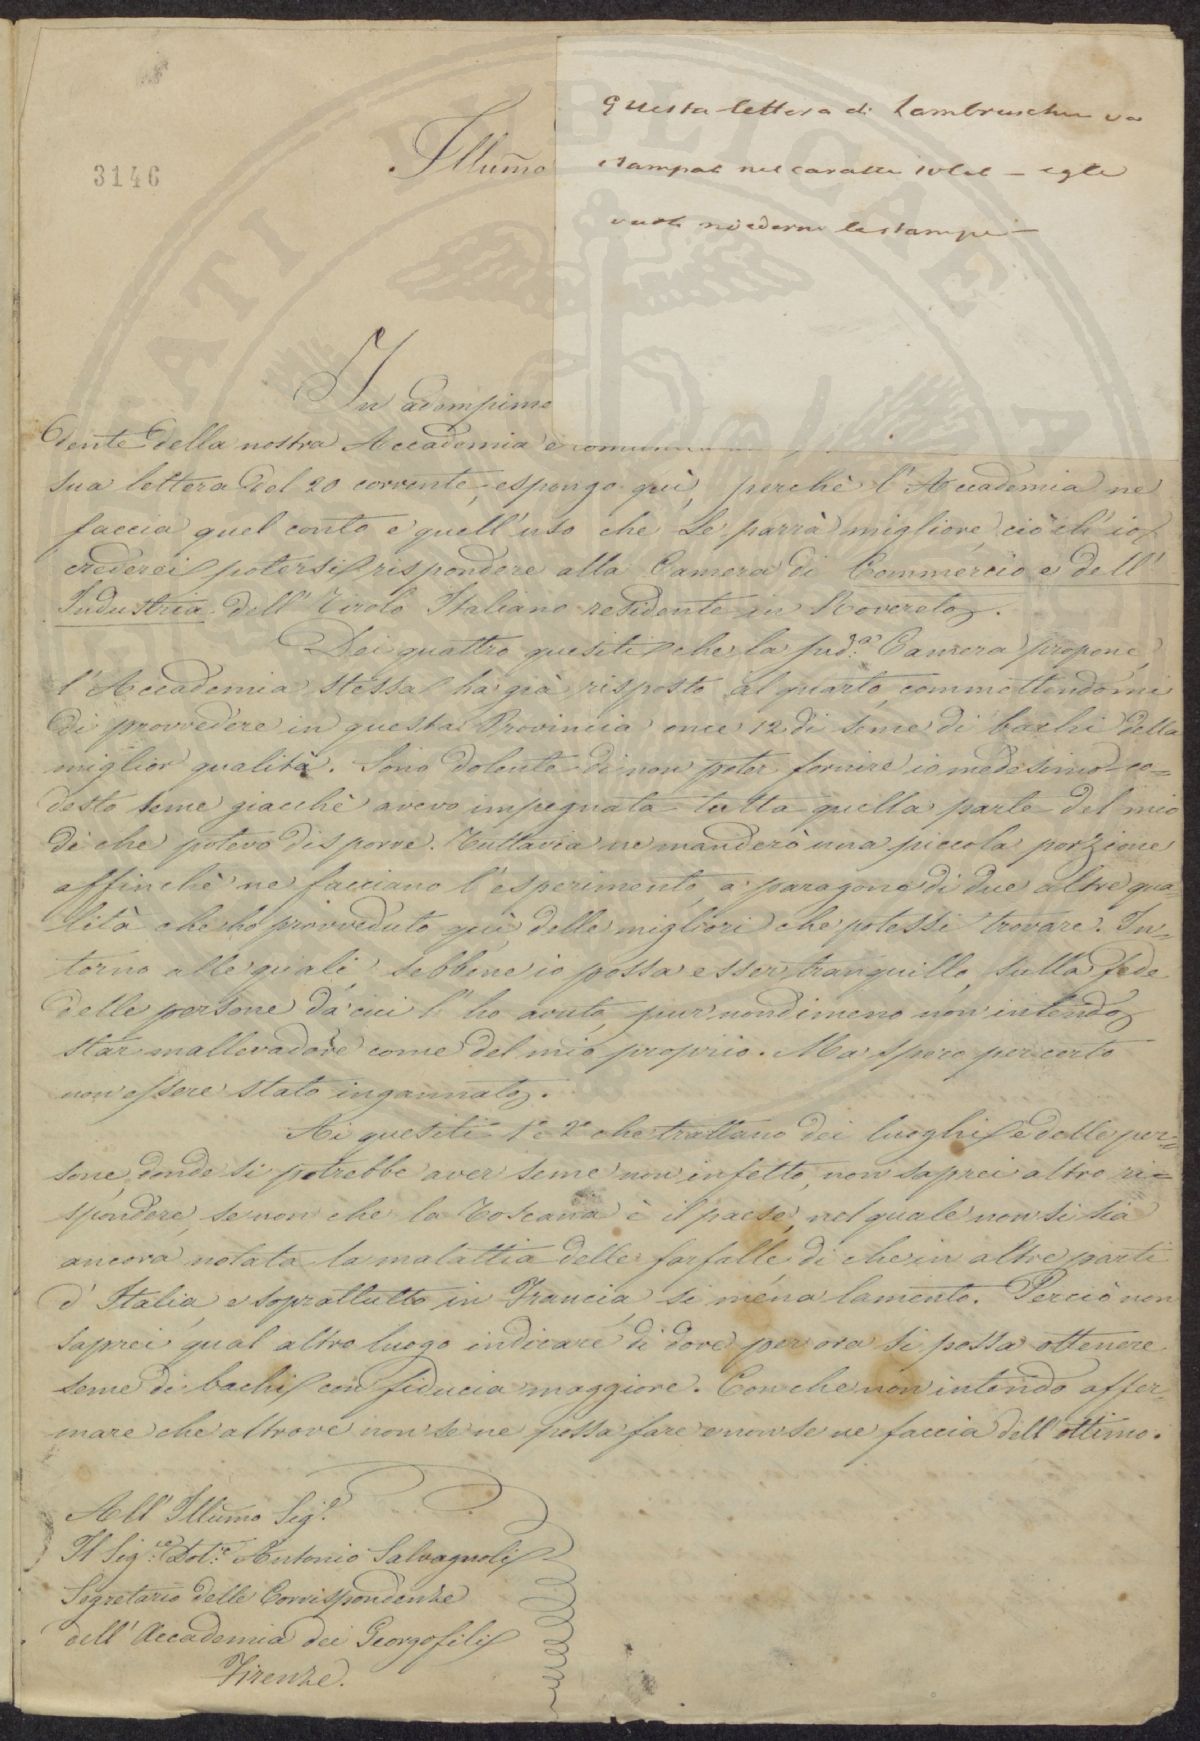 Questa lettera di Lambruschini va
stampata nel carattere solito – egli
vuole rivederne le stampe –
3146
Illumo
In adempime
dente della nostra Accademia e comun
sua lettera del 20 corrente, espongo quì, perchè l'Accademia ne
faccia quel conto e quell'uso che Le parrà migliore, ciò ch'io
crederei potersi rispondere alla Camera di Commercio e dell'
Industria dell'Tirolo Italiano residente in Rovereto.
Dei quattro quesiti che la pred.a Camera propone,
l'Accademia stessa ha già risposto al quarto, commettendomi
di provvedere in questa Provincia once 12 di seme di bachi della
miglior qualità. Sono dolente di non poter fornire io medesimo co=
desto seme giacchè avevo impegnata tutta quella parte del mio
di che potevo disporre. Tuttavia ne manderò una piccola porzione
affinchè ne facciano l'esperimento, a paragone di due altre qua=
lità che ho provveduto quì, delle migliori che potessi trovare. In=
torno alle quali, sebbene io possa esser tranquillo, sulla fede
delle persone da cui l'ho avuto, pur nondimeno non intendo
star mallevadore come del mio proprio. Ma spero per certo
non essere stato ingannato.
Ai quesiti 1° e 2° che trattano dei luoghi e delle per=
sone, donde si potrebbe aver seme non infetto, non saprei altro ri=
spondere, se non che la Toscana è il paese, nel quale non si sia
ancora notata la malattia delle farfalle di che in altre parti
d'Italia, e soprattutto in Francia, si mena lamento. Perciò non
saprei qual altro luogo indicare di dove per ora si possa ottenere
seme di bachi con fiducia maggiore. Con che non intendo affer=
mare che altrove non se ne possa fare e non se ne faccia dell'ottimo.
All'Illumo Sig.r
Il Sig.re Dot.re Antonio Salvagnoli
Segretario delle Corrispondenze
dell'Accademia dei Georgofili
Firenze.